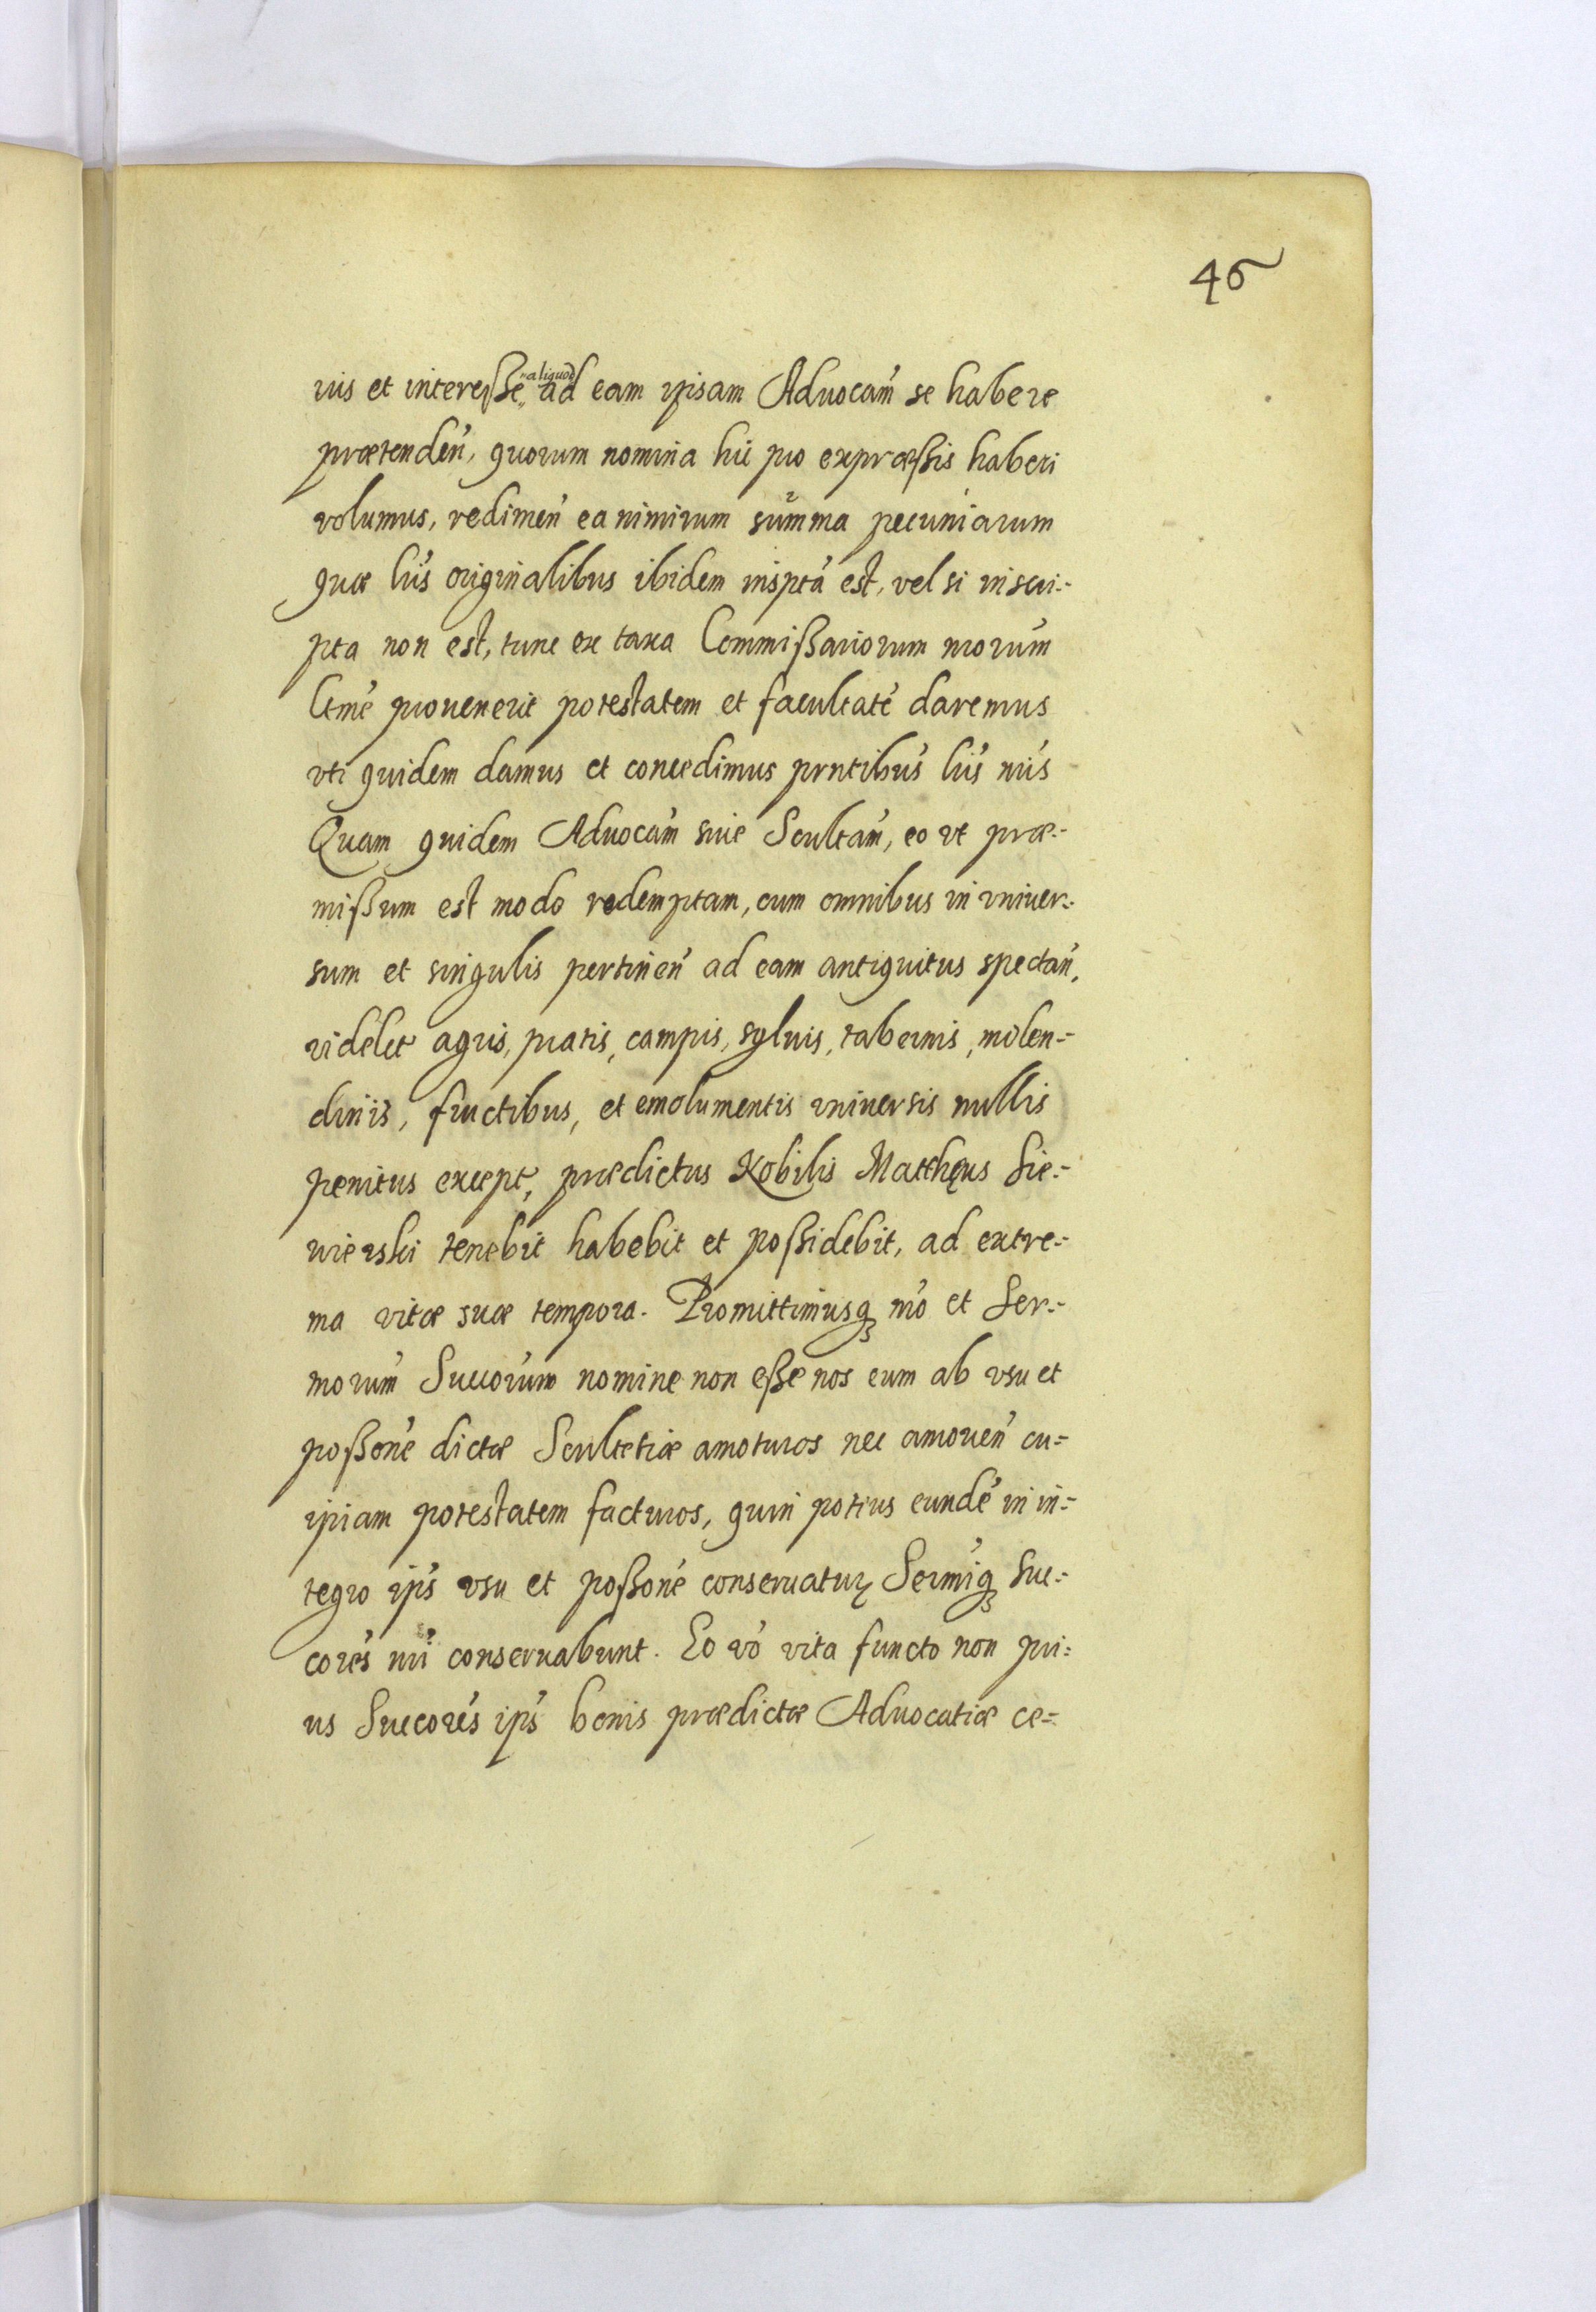 46
iuis et interesse aliquod ad eam ipisam Aduocam̃ se habere
prætendeń, quorum nomina hic pro expræssis haberi
volumus, redimeń ea nimirum summa pecuniarum
quæ lr̃is originalibus ibidem insptá est, vel si inscri-
pta non est, tunc ex taxa Commissariorum nrorum
ltmé prouenerit potestatem et facultaté daremus
vti quidem damus et concedimus prntibus lŕis nrís
Quam quidem Aduocam̃ siue Scultam̃, eo vt præ-
missum est modo redemptam, cum omnibus in vniuer-
sum et singulis pertineń ad eam antiquitus spectań,
videlet agris, pratis, campis, syluis, tabernis, molen-
dinis, fructibus, et emolumentis vniuersis nullis
penitus except, prædictus Nobilis Matthęus Sie-
wierski tenebit habebit et possidebit, ad extre-
ma vitæ suæ tempora. Promittimusq3 nró et Ser-
morum Succorum nomine non esse nos eum ab vsu et
possoné dictæ Scultetiæ amoturos nec amoueń cu-
ipiam potestatem facturos, quin potius eundé in in-
tegro ips vsu et possoné conseruatur Sermiq3 Suc-
corés nri conseruabunt. Eo vó vita functo non pri-
us Succorés ips bonis prædictæ Aduocatiæ ce-